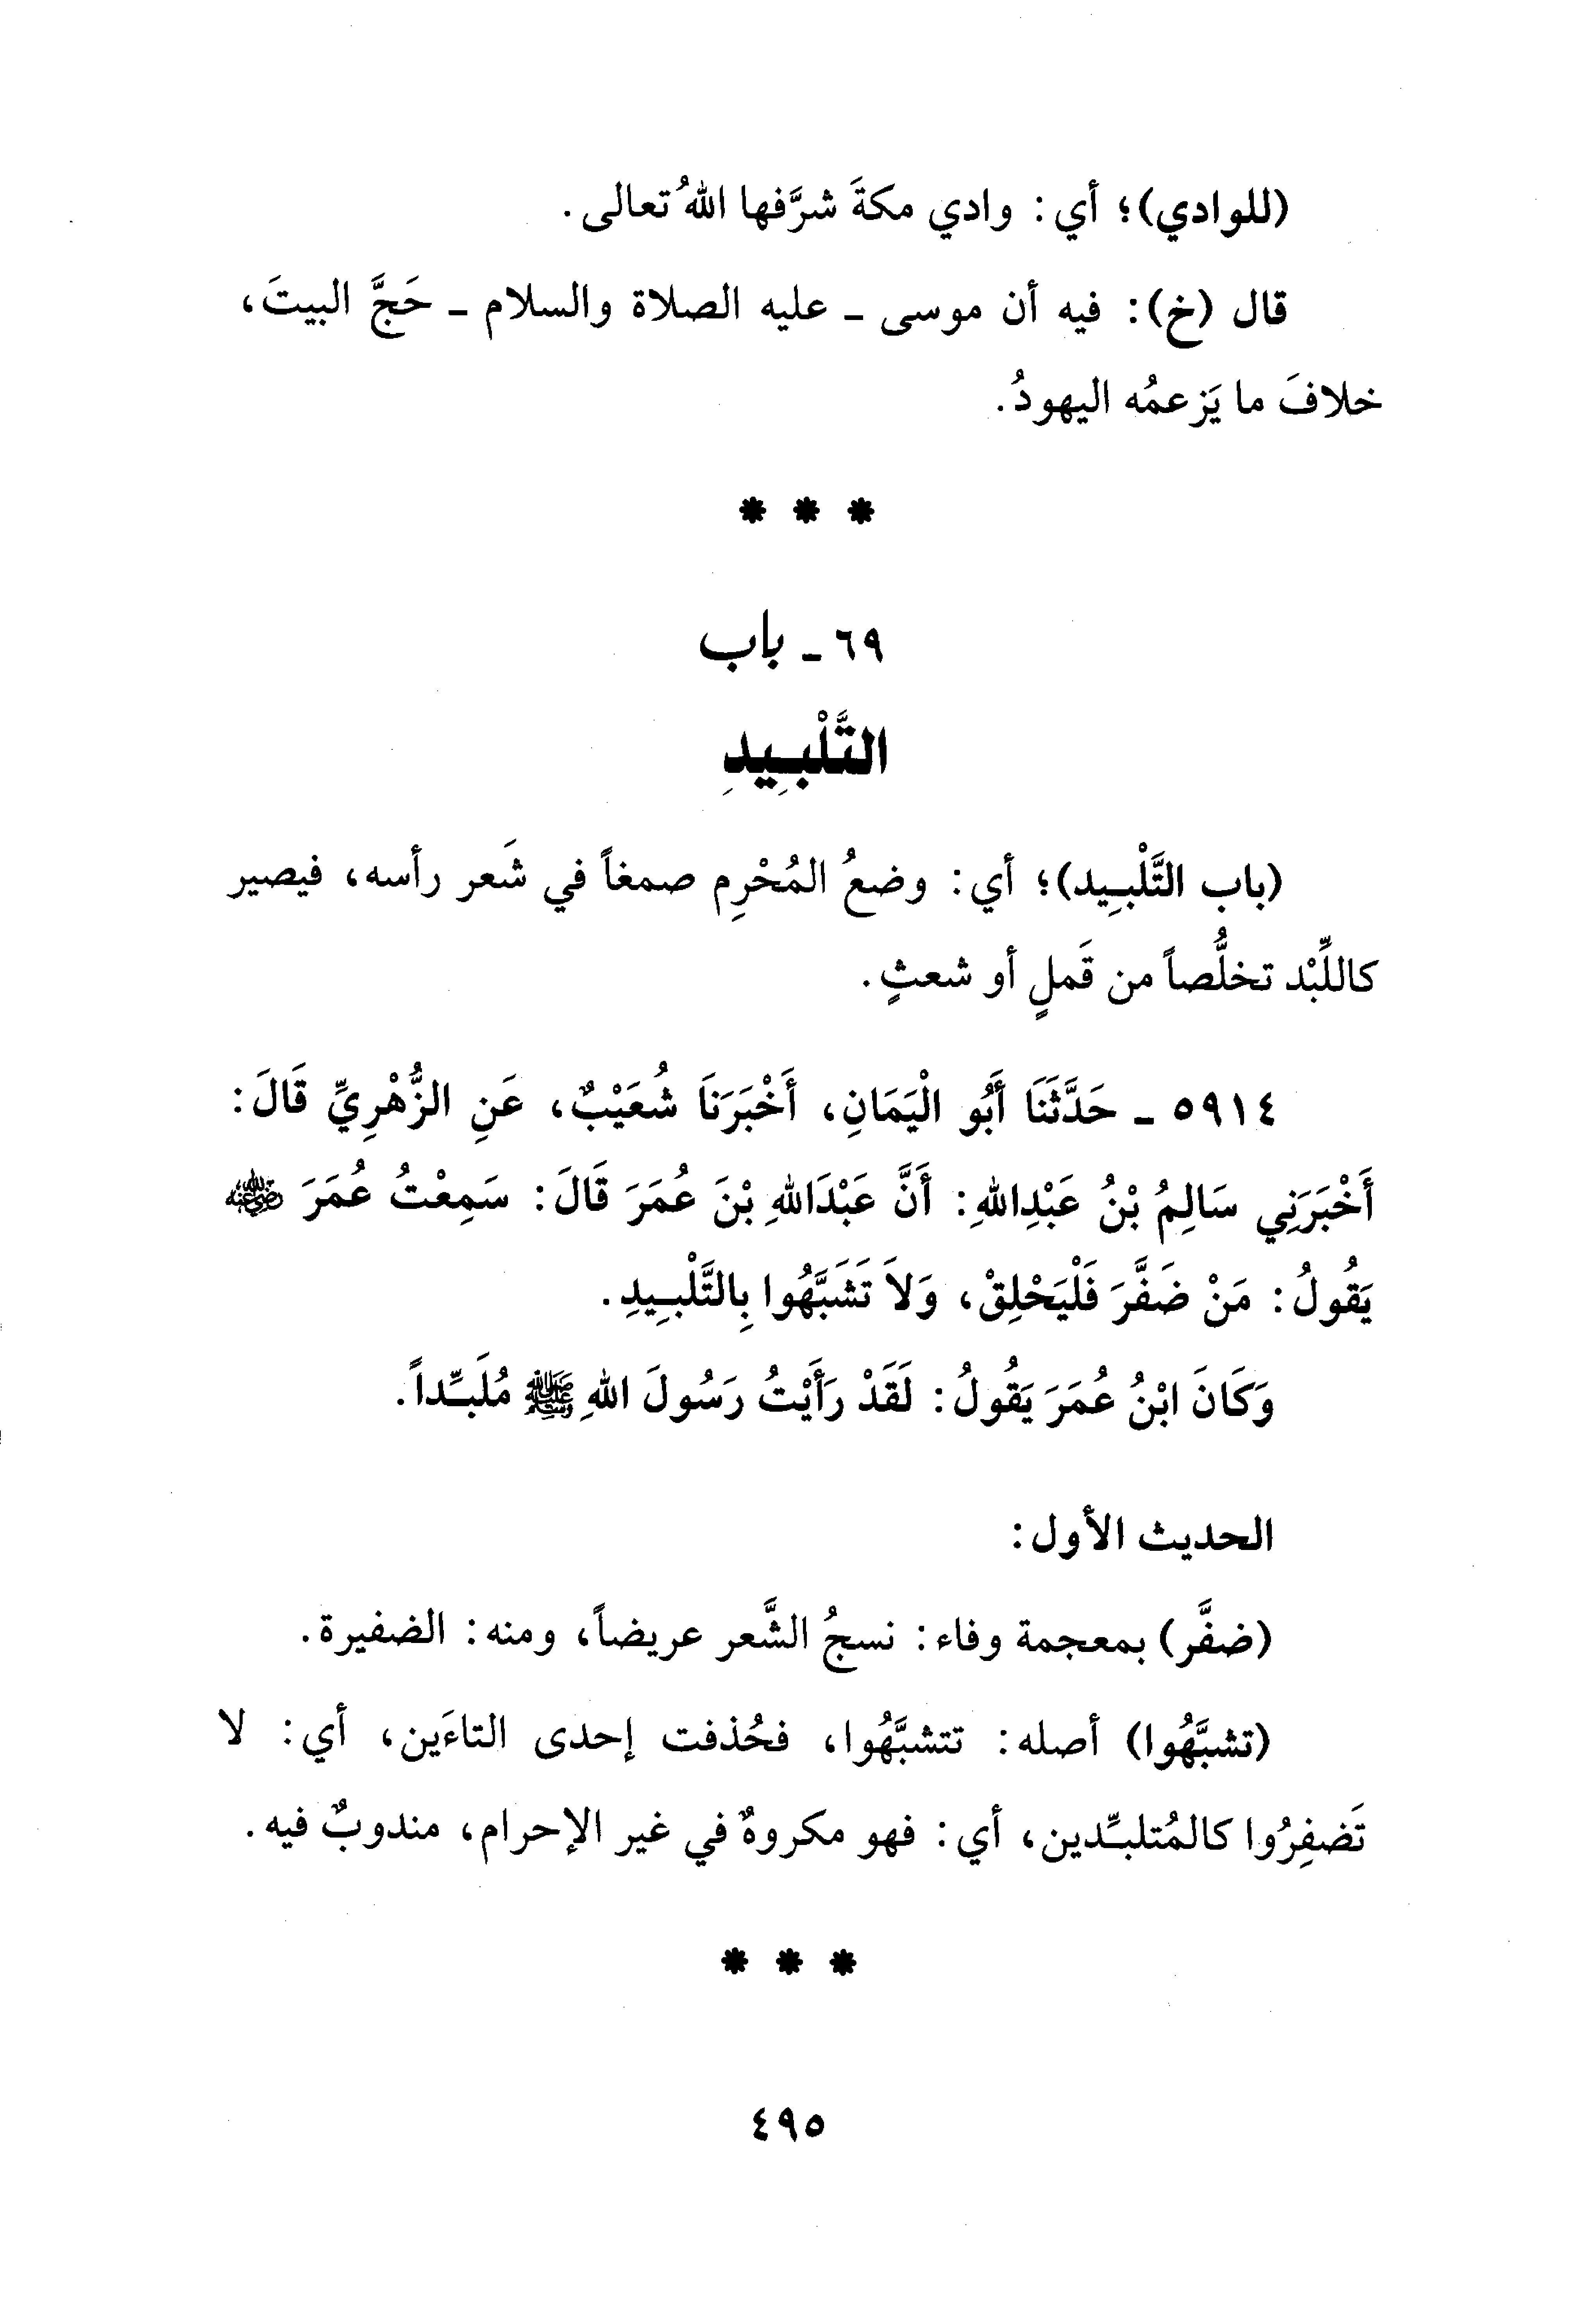 (للوادي)؛ أي: وادي مكةَ شرَّفها اللهُ تعالى.
قال (خ): فيه أن موسى ـ عليه الصلاة والسلام ـ حَجَّ البيتَ،
خلافَ ما يَزعمُه اليهودُ.
* * *
٦٩ ـ باب
التَّلْبِيدِ
(باب التَّلْبِيد)؛ أي: وضعُ المُحْرِم صمغاً في شَعر رأسه، فيصير
كاللِّبْد تخلُّصاً من قَملٍ أو شعثٍ.
٥٩١٤ ـ حَدَّثَنَا أَبُو الْيَمَانِ، أَخْبَرَنَا شُعَيْبٌ، عَنِ الزُّهْرِيِّ قَالَ:
أَخْبَرَنِي سَالِمُ بْنُ عَبْدِاللهِ: أَنَّ عَبْدَاللهِ بْنَ عُمَرَ قَالَ: سَمِعْتُ عُمَرَ رضي الله عنه
يَقُولُ: مَنْ ضَفَّرَ فَلْيَحْلِقْ، وَلاَ تَشَبَّهُوا بِالتَّلْبِيدِ.
وَكَانَ ابْنُ عُمَرَ يَقُولُ: لَقَدْ رَأَيْتُ رَسُولَ اللهِ ﷺ مُلَبِّداً.
الحديث الأول:
(ضفَّر) بمعجمة وفاء: نسجُ الشَّعر عريضاً، ومنه: الضفيرة.
(تشبَّهُوا) أصله: تتشبَّهُوا، فحُذفت إحدى التاءَين، أي: لا
تَضفِرُوا كالمُتلبِّدين، أي: فهو مكروهٌ في غير الإحرام، مندوبٌ فيه.
* * *
٤٩٥